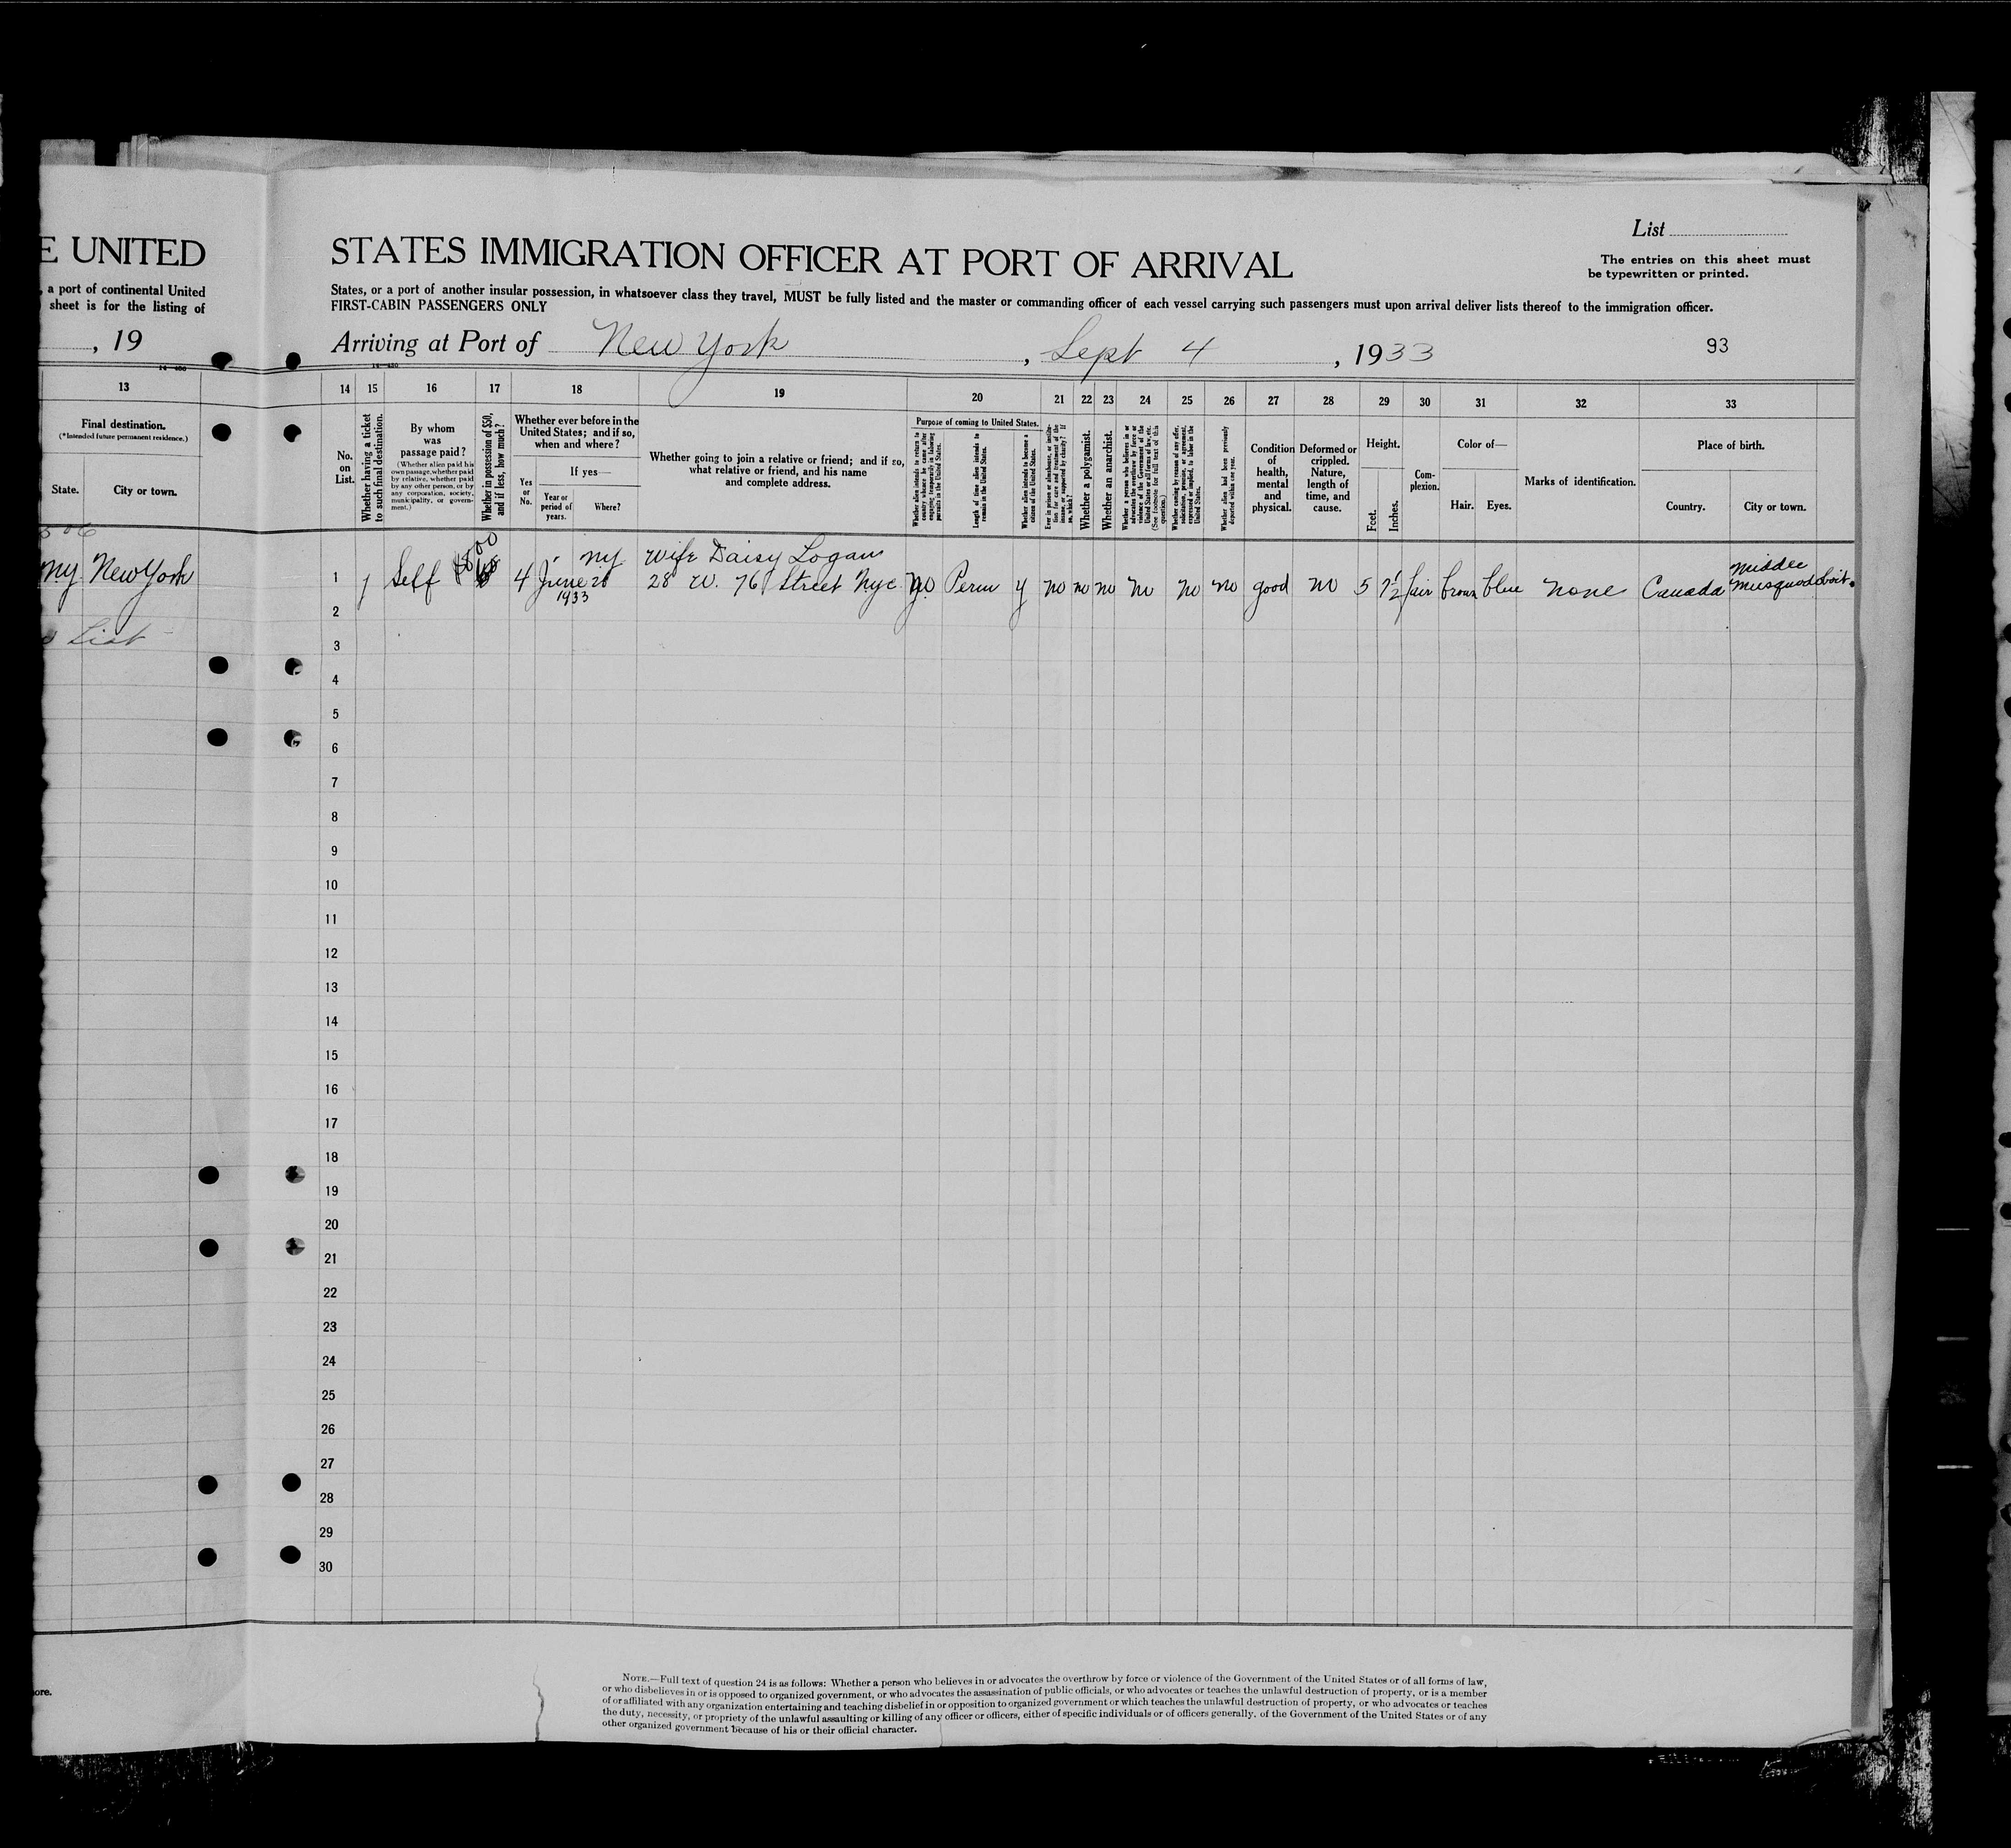 E UNITED
, a port of continental United
sheet is for the listing of
, 19
14—430
13
Final destination.
(*Intended future permanent residence.)
State.
City or town.
506
NY New York
List
ore.
List
STATES IMMIGRATION OFFICER AT PORT OF ARRIVAL
The entries on this sheet must
be typewritten or printed.
States, or a port of another insular possession, in whatsoever class they travel, MUST be fully listed and the master or commanding officer of each vessel carrying such passengers must upon arrival deliver lists thereof to the immigration officer.
FIRST-CABIN PASSENGERS ONLY
Arriving at Port of New York, Sept 4, 1933
93
14—430
14 15 16 17 18 19 20 21 22 23 24 25 26 27 28 29 30 31 32 33
No.
on
List.
Whether having a ticket
to such final destination.
By whom
was
passage paid?
(Whether alien paid his
own passage, whether paid
by relative, whether paid
by any other person, or by
any corporation, society,
municipality, or govern-
ment.)
Whether in possession of $50,
and if less, how much?
Whether ever before in the
United States; and if so,
when and where?
Yes
or
No.
If yes—
Year or
period of
years.
Where?
Whether going to join a relative or friend; and if so,
what relative or friend, and his name
and complete address.
Purpose of coming to United States.
Whether alien intends to return to
country whence he came after
engaging temporarily in laboring
pursuits in the United States.
Length of time alien intends to
remain in the United States.
Whether alien intends to become a
citizen of the United States.
Ever in prison or almshouse, or institu-
tion for care and treatment of the
insane, or supported by charity? If
so, which?
Whether a polygamist.
Whether an anarchist.
Whether a person who believes in or
advocates the overthrow by force or
violence of the Government of the
United States or all forms of law, etc.
(See footnote for full text of this
question.)
Whether coming by reason of any offer,
solicitation, promise, or agreement,
expressed or implied, to labor in the
United States.
Whether alien had been previously
deported within one year.
Condition
of
health,
mental
and
physical.
Deformed or
crippled.
Nature,
length of
time, and
cause.
Height.
Feet.
Inches.
Com-
plexion.
Color of—
Hair.
Eyes.
Marks of identification.
Place of birth.
Country.
City or town.
NY Wife Daisy Logan Middle
1 Self 4 June 28 W. 76 Street NYC No Perm y no no no no no no good no 5 7½ fair brown blue none Canada Musquodoboit
1933
2
3
4
5
6
7
8
9
10
11
12
13
14
15
16
17
18
19
20
21
22
23
24
25
26
27
28
29
30
NOTE.—Full text of question 24 is as follows: Whether a person who believes in or advocates the overthrow by force or violence of the Government of the United States or of all forms of law,
or who disbelieves in or is opposed to organized government, or who advocates the assassination of public officials, or who advocates or teaches the unlawful destruction of property, or is a member
of or affiliated with any organization entertaining and teaching disbelief in or opposition to organized government or which teaches the unlawful destruction of property, or who advocates or teaches
the duty, necessity, or propriety of the unlawful assaulting or killing of any officer or officers, either of specific individuals or of officers generally, of the Government of the United States or of any
other organized government because of his or their official character.